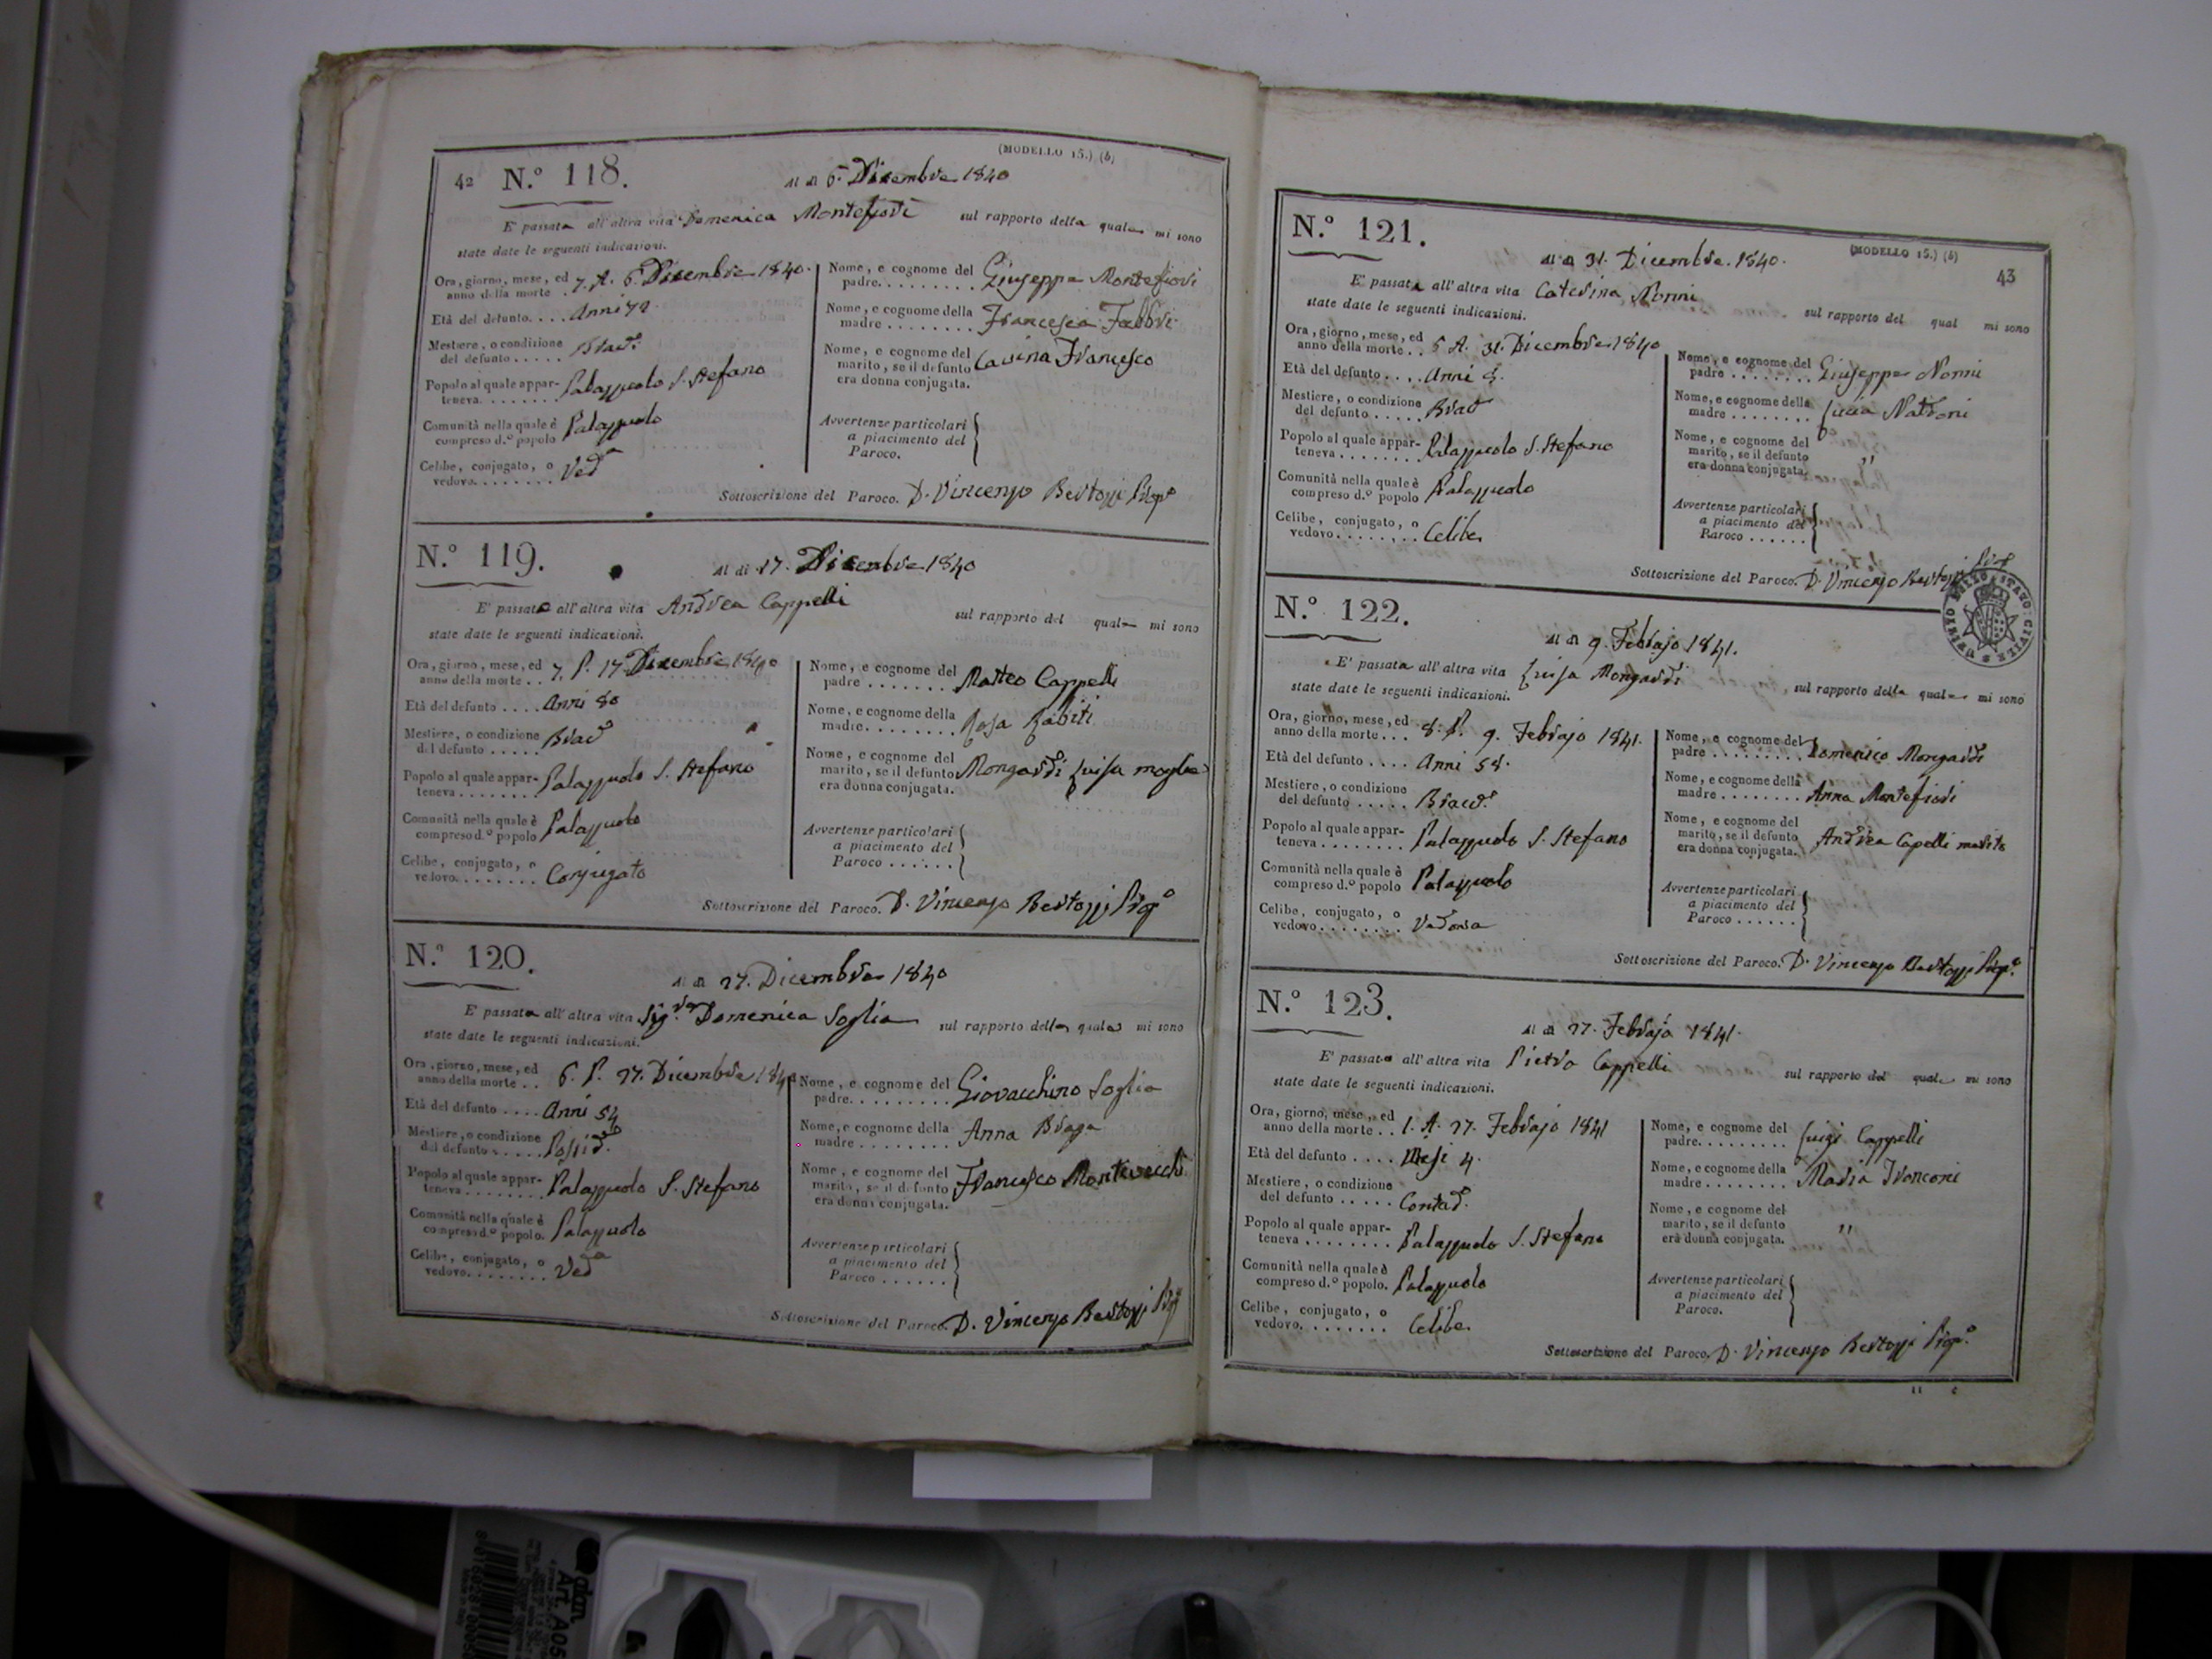 (MODELLO 15.) (b)
42 N.° 118.
Al dì 6. Dicembre 1840
E' passata all'altra vita Domenica Montefiori sul rapporto della quale mi sono
state date le seguenti indicazioni.
Ora, giorno, mese, ed
anno della morte . 7. A. 6. Dicembre 1840.
Età del defunto. . . . Anni 72
Mestiere, o condizione
del defunto . . . . . Bracc.e
Popolo al quale appar-
teneva. . . . . . . . Palazzuolo S. Stefano
Comunità nella quale è
compreso d.° popolo Palazzuolo
Celibe, conjugato, o
vedovo. . . . . . . . Ved.a
Nome, e cognome del
padre. . . . . . . . . Giuseppe Montefiori
Nome, e cognome della
madre . . . . . . . . Francesca Fabbri
Nome, e cognome del
marito, se il defunto Cavina Francesco
era donna conjugata.
Avvertenze particolari
a piacimento del
Paroco.
Sottoscrizione del Paroco. D. Vincenzo Bertozzi Prop.o
N.° 119.
Al dì 17. Dicembre 1840
E' passato all'altra vita Andrea Cappelli sul rapporto del quale mi sono
state date le seguenti indicazioni.
Ora, giorno, mese, ed
anno della morte . . 7. P. 17. Dicembre 1840
Età del defunto . . . . Anni 80
Mestiere, o condizione
del defunto . . . . . Bracc.e
Popolo al quale appar-
teneva . . . . . . . . Palazzuolo S. Stefano
Comunità nella quale è
compreso d.° popolo Palazzuolo
Celibe, conjugato, o
vedovo. . . . . . . . Conjugato
Nome, e cognome del
padre . . . . . . . . Matteo Cappelli
Nome, e cognome della
madre. . . . . . . . . Rosa Rabiti
Nome, e cognome del
marito, se il defunto Mongardi Luisa moglie
era donna conjugata.
Avvertenze particolari
a piacimento del
Paroco . . . . . .
Sottoscrizione del Paroco. D. Vincenzo Bertozzi Prop.o
N.° 120.
Al dì 27. Dicembre 1840
E' passata all'altra vita Sig.ra Domenica Soglia sul rapporto della quale mi sono
state date le seguenti indicazioni.
Ora, giorno, mese, ed
anno della morte . . 6. P. 27. Dicembre 1840
Età del defunto . . . . Anni 54
Mestiere, o condizione
del defunto . . . . . Possid.e
Popolo al quale appar-
teneva . . . . . . . . Palazzuolo S. Stefano
Comunità nella quale è
compreso d.° popolo. Palazzuolo
Celibe, conjugato, o
vedovo. . . . . . . . Ved.a
Nome, e cognome del
padre. . . . . . . . . Giovacchino Soglia
Nome, e cognome della
madre . . . . . . . . Anna Braga
Nome, e cognome del
marito, se il defunto Francesco Montevecchi
era donna conjugata.
Avvertenze particolari
a piacimento del
Paroco . . . . . .
Sottoscrizione del Paroco. D. Vincenzo Bertozzi Prop.o
N.° 121.
(MODELLO 15.) (b)
43
Al dì 31. Dicembre. 1840.
E' passata all'altra vita Caterina Nonni sul rapporto del qual mi sono
state date le seguenti indicazioni.
Ora, giorno, mese, ed
anno della morte . . 5 A. 31. Dicembre 1840
Età del defunto . . . . Anni
Mestiere, o condizione
del defunto . . . . . Bracc.e
Popolo al quale appar-
teneva . . . . . . . . Palazzuolo S. Stefano
Comunità nella quale è
compreso d.° popolo Palazzuolo
Celibe, conjugato, o
vedovo. . . . . . . . Celibe
Nome, e cognome del
padre . . . . . . . . Giuseppe Nonni
Nome, e cognome della
madre . . . . . . . . Lucia Naldoni
Nome, e cognome del
marito, se il defunto "
era donna conjugata.
Avvertenze particolari
a piacimento del
Paroco . . . . . .
Sottoscrizione del Paroco. D. Vincenzo Bertozzi Prop.
N.° 122.
Al dì 9. Febbrajo 1841.
E' passata all'altra vita Luisa Mongardi sul rapporto della quale mi sono
state date le seguenti indicazioni.
Ora, giorno, mese, ed
anno della morte . . . 8. P. 9. Febbrajo 1841.
Età del defunto . . . . Anni 58.
Mestiere, o condizione
del defunto . . . . . Bracc.e
Popolo al quale appar-
teneva . . . . . . . . Palazzuolo S. Stefano
Comunità nella quale è
compreso d.° popolo Palazzuolo
Celibe, conjugato, o
vedovo. . . . . . . . Vedova
Nome, e cognome del
padre . . . . . . . . . Domenico Mongardi
Nome, e cognome della
madre . . . . . . . . Anna Montefiori
Nome, e cognome del
marito, se il defunto Andrea Capelli marito
era donna conjugata.
Avvertenze particolari
a piacimento del
Paroco . . . . . .
Sottoscrizione del Paroco. D. Vincenzo Bertozzi Prop.o
N.° 123.
Al dì 27. Febbrajo 1841.
E' passato all'altra vita Pietro Cappelli sul rapporto del quale mi sono
state date le seguenti indicazioni.
Ora, giorno, mese, ed
anno della morte . . 1. A. 27. Febbrajo 1841
Età del defunto . . . . Mesi 4.
Mestiere, o condizione
del defunto . . . . . Contad.e
Popolo al quale appar-
teneva . . . . . . . . Palazzuolo S. Stefano
Comunità nella quale è
compreso d.° popolo. Palazzuolo
Celibe, conjugato, o
vedovo. . . . . . . . Celibe
Nome, e cognome del
padre. . . . . . . . . Luigi Cappelli
Nome, e cognome della
madre . . . . . . . . Maria Franconi
Nome, e cognome del
marito, se il defunto "
era donna conjugata.
Avvertenze particolari
a piacimento del
Paroco.
Sottoscrizione del Paroco. D. Vincenzo Bertozzi Prop.o
adam
Art. A05